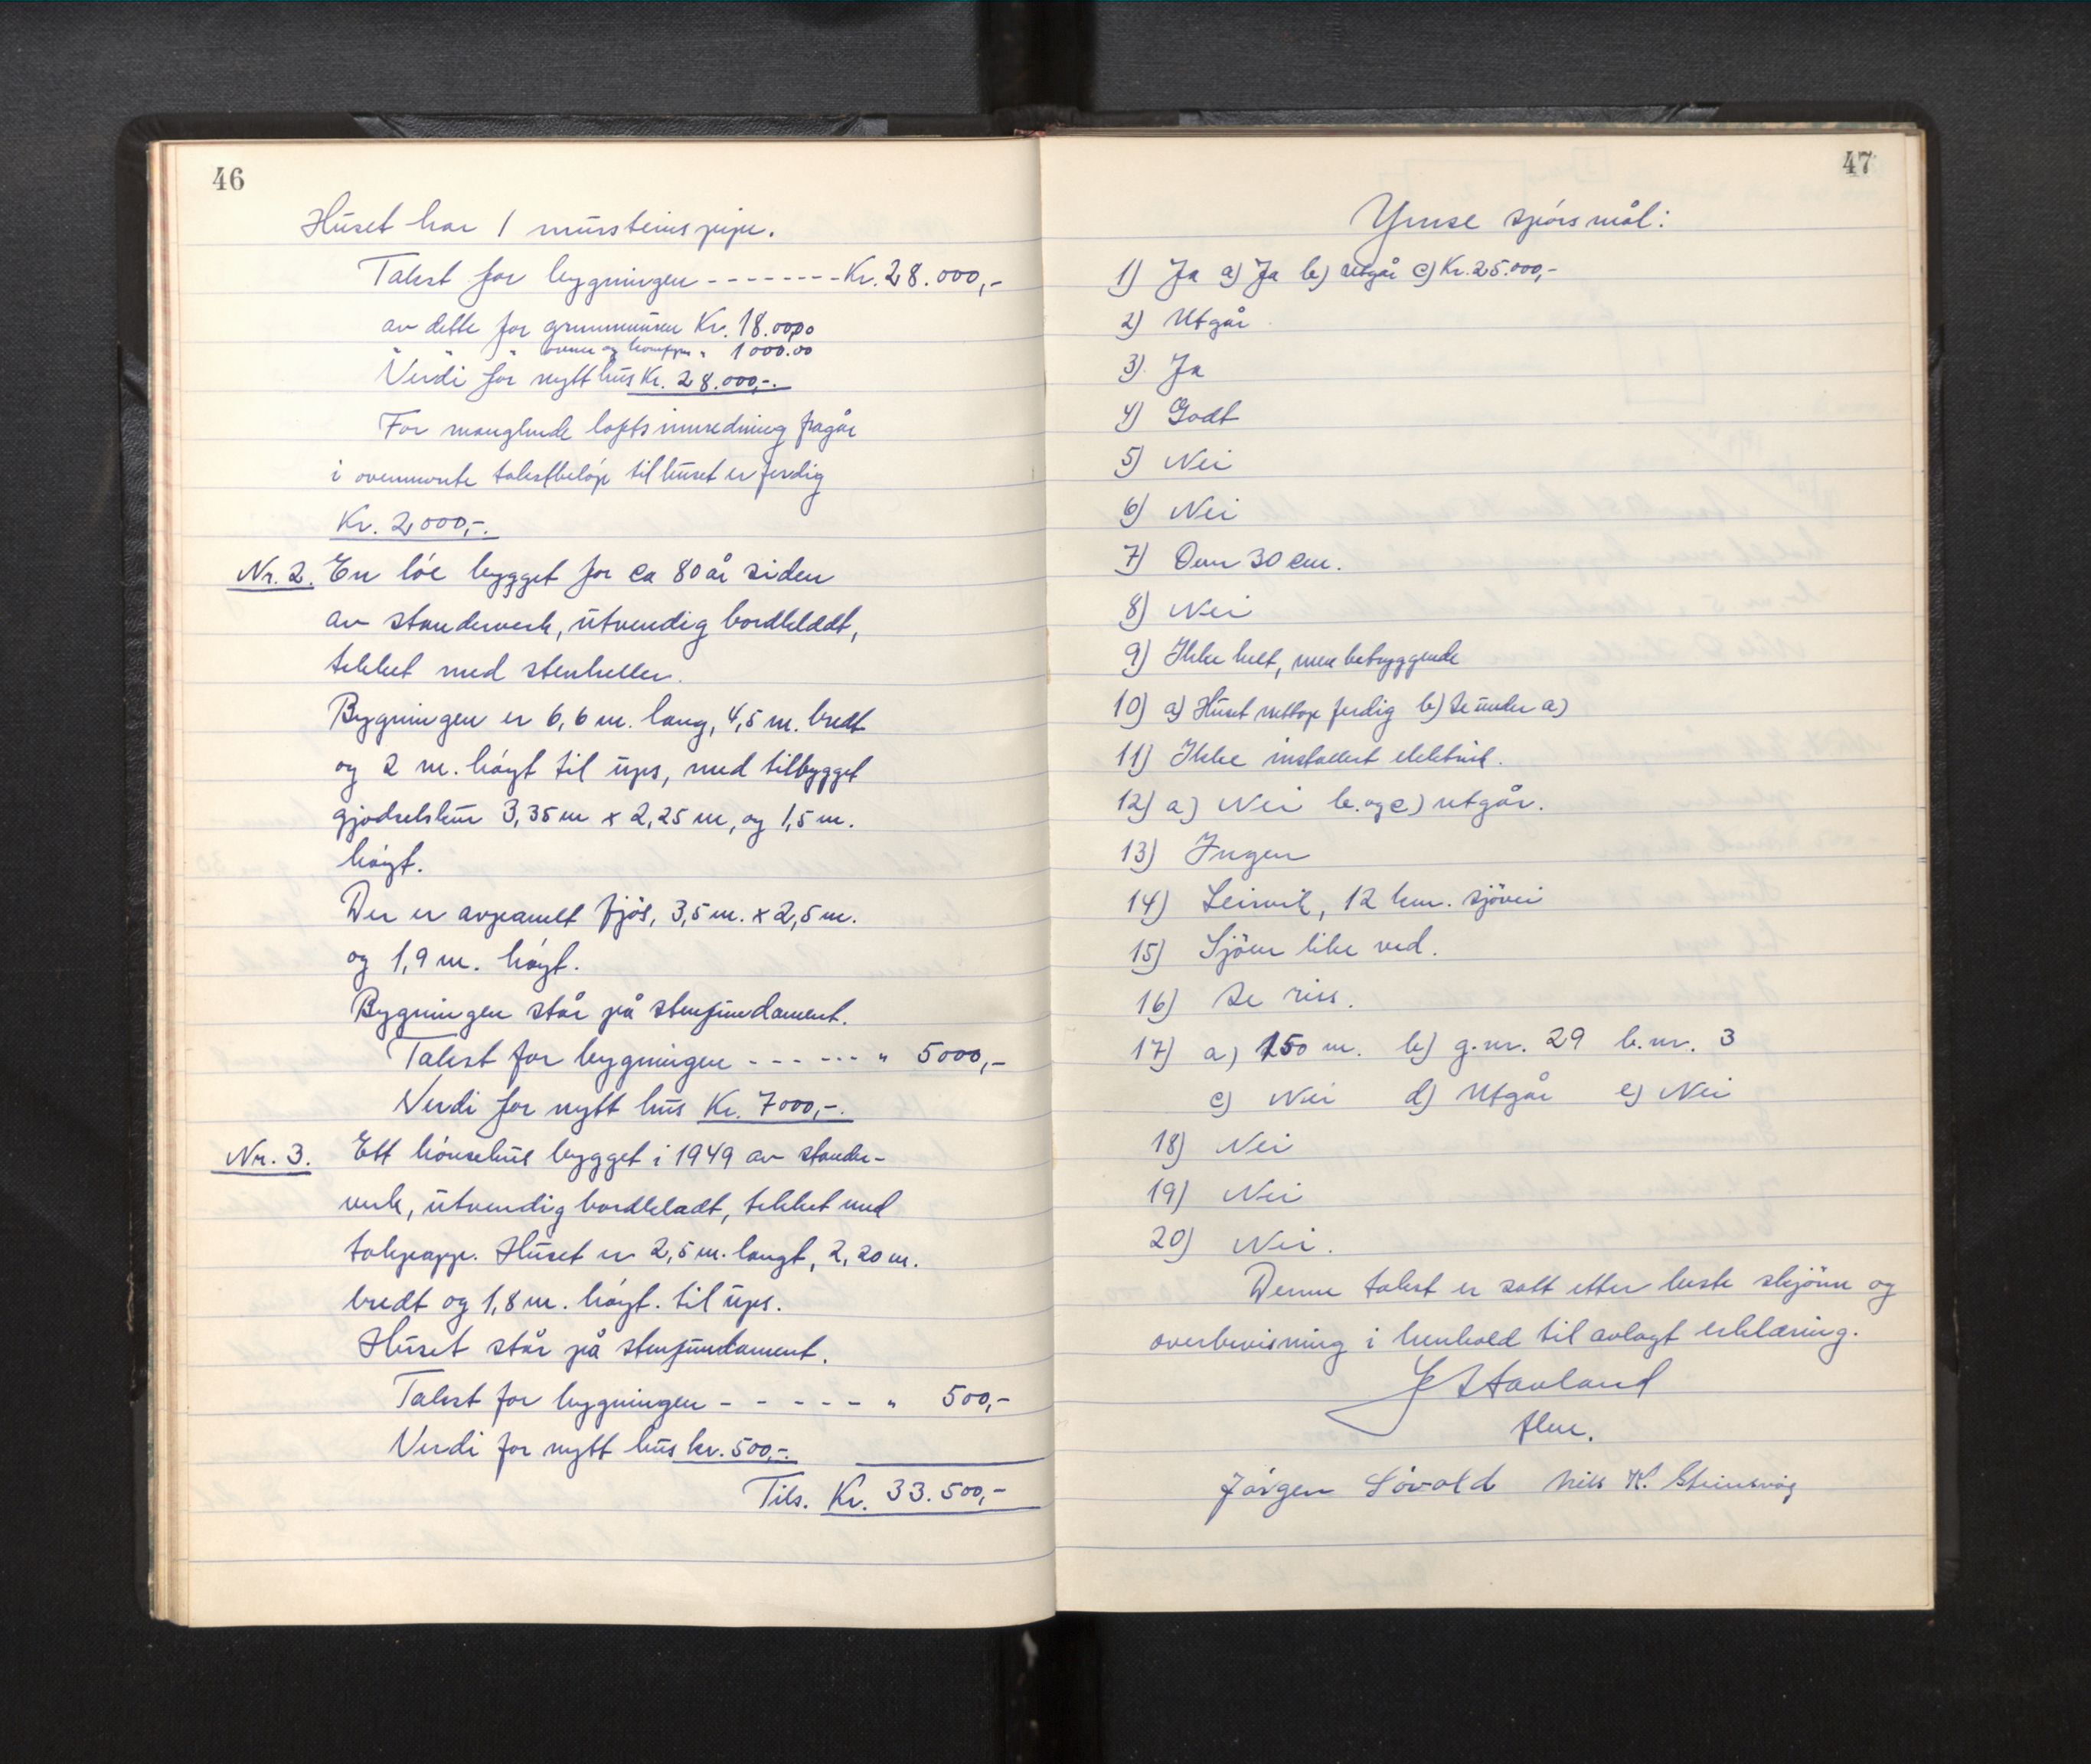 46
Huset har 1 mursteinspipe.
Takst for bygningen - - - - - - - - Kr. 28.000,-
av dette for grunnmuren Kr. 18.000
" " " ovner og komfyr " 1000.00
Verdi for nytt hus Kr. 28.000,-.
For manglende loftsinnredning fragår
i ovennevnte takstbeløp til huset er ferdig
Kr. 2000,-.
Nr. 2. En löe bygget for ca 80 år siden
av standerverk, utvendig bordkledt,
tekket med stenheller.
Bygningen er 6,6 m. lang, 4,5 m. bredt
og 2 m. høyt til ups, med tilbygget
gjødselskur 3,35 m x 2,25 m, og 1,5 m.
høyt.
Der er avpanelt fjös, 3,5 m. x 2,5 m.
og 1,9 m. høyt.
Bygningen står på stenfundament.
Takst for bygningen - - - - - - " 5000,-
Verdi for nytt hus Kr. 7000,-.
Nr. 3. Ett hönsehus bygget i 1949 av stander-
verk, utvendig bordkledt, tekket med
takpapp. Huset er 2,5 m. langt, 2,20 m.
bredt og 1,8 m. høyt. til ups.
Huset står på stenfundament.
Takst for bygningen - - - - - - " 500,-
Verdi for nytt hus kr. 500,-.
Tils. Kr. 33.500,-
47
Ymse spörsmål:
1) Ja a) Ja b) utgår c) Kr. 25.000,-
2) Utgår
3) Ja
4) Godt
5) Nei
6) Nei
7) Over 30 cm.
8) Nei
9) Ikke helt, men betryggende
10) a) Huset nettop ferdig b) Se under a)
11) Ikke installert elektrisk.
12) a) Nei b. og c) utgår.
13) Ingen
14) Leirvik, 12 km. sjövei
15) Sjöen like ved.
16) Se riss.
17) a) 150 m. b) g.nr. 29 b.nr. 3
c) Nei d) Utgår e) Nei
18) Nei
19) Nei
20) Nei.
Denne takst er satt etter beste skjönn og
overbevisning i henhold til avlagt erklæring.
Stavland
Jörgen Lövold Nils K. Steinsvåg